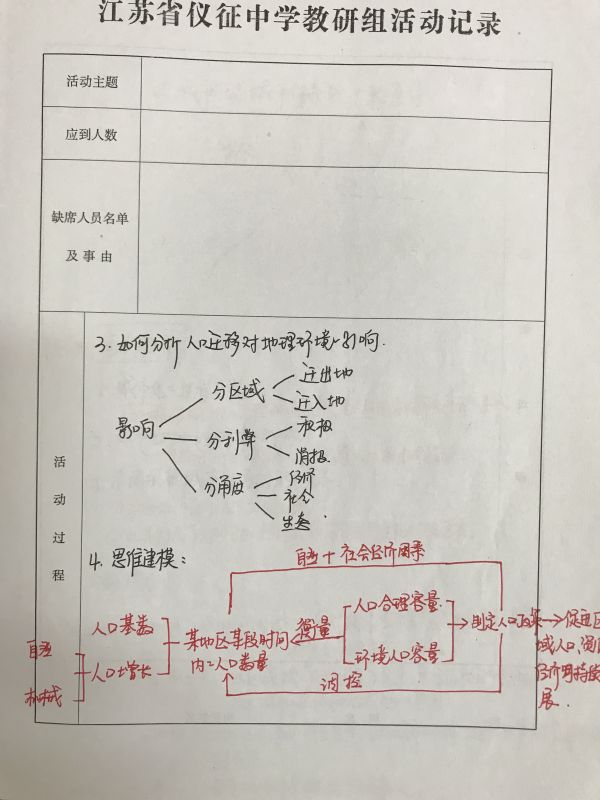 江苏省仪征中学教研组活动记录
活动主题
应到人数
缺席人员名单
及事由
活动过程
3.如何分析人口迁移对地理环境的影响.
影响
分区域
迁出地
迁入地
分利弊
积极
消极
分角度
经济
社会
生态.
4.思维建模:
自然+社会经济因素
人口基数
人口增长
自然
机械
某地区某段时间
内的人口数量
衡量
人口合理容量
环境人口容量
制定人口政策
促进区
域人口、资
经济可持续
展.
调控